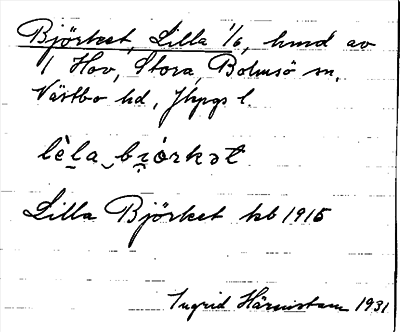 Björket, Lilla 1/6, hmd av
1 Hov, Stora, Bolmsö sn,
Västbo hd, Jkpgs l.
lèla bi̯örkət
Lilla Björket kb 1915
Ingrid Härnstam 1931